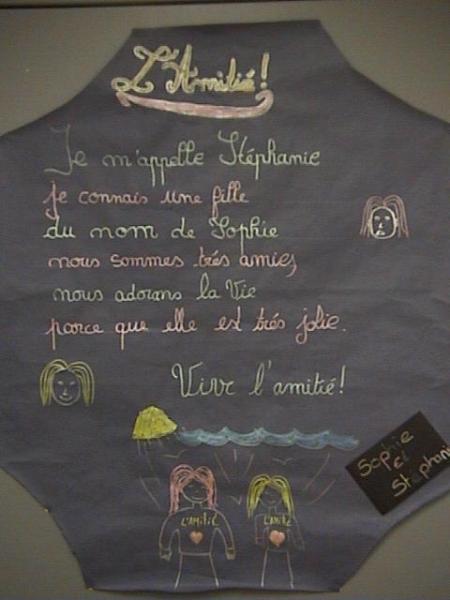 L'Amitié!
Je m'appelle Stéphanie
je connais une fille
du nom de Sophie
nous sommes très amies,
nous adorons la Vie
parce que elle est très jolie.
Vive l'amitié!
L'AMITIÉ
L'AMITIÉ
Sophie
et
Stéphanie